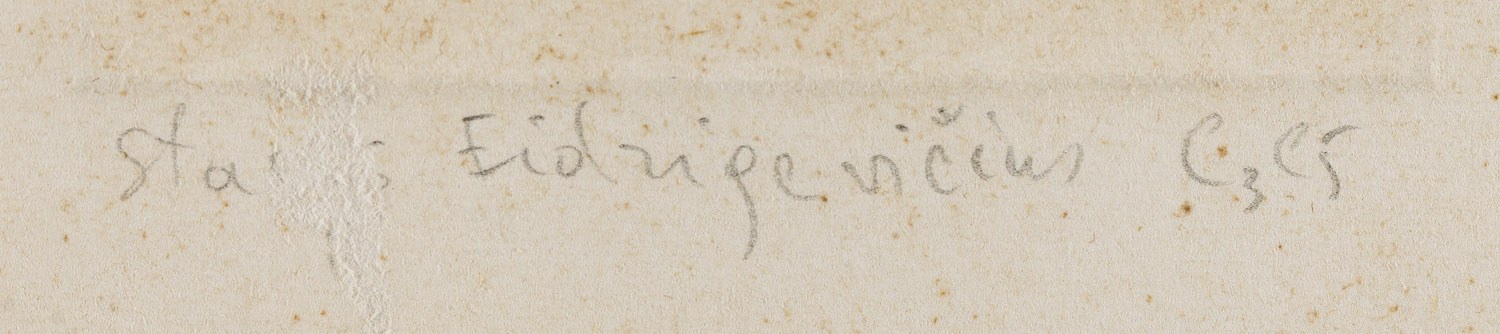 Eidrigevičius C3C5